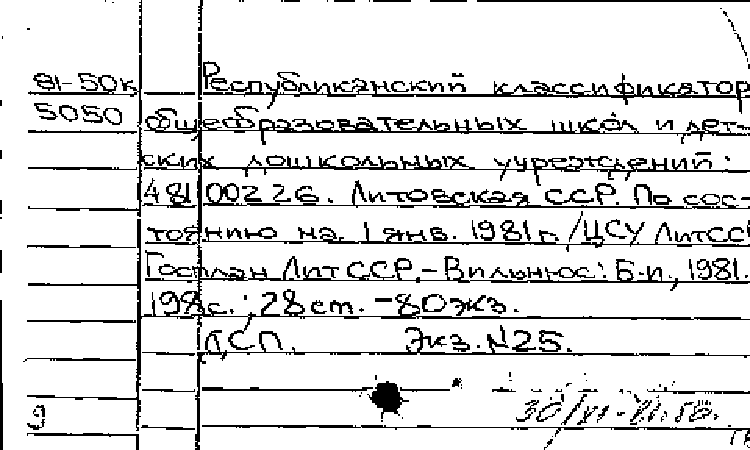 81-50к Республиканский классификатор
5050 общеобразовательных школ и дет-
ских дошкольных учреждений:
48100226. Литовская ССР. По сос-
тоянию на 1 янв. 1981г. /ЦСУ ЛитССР
Госплан ЛитССР.-Вильнюс: Б.и., 1981.
198с.; 28см. -80экз.
ДСП. Экз.N25.
9